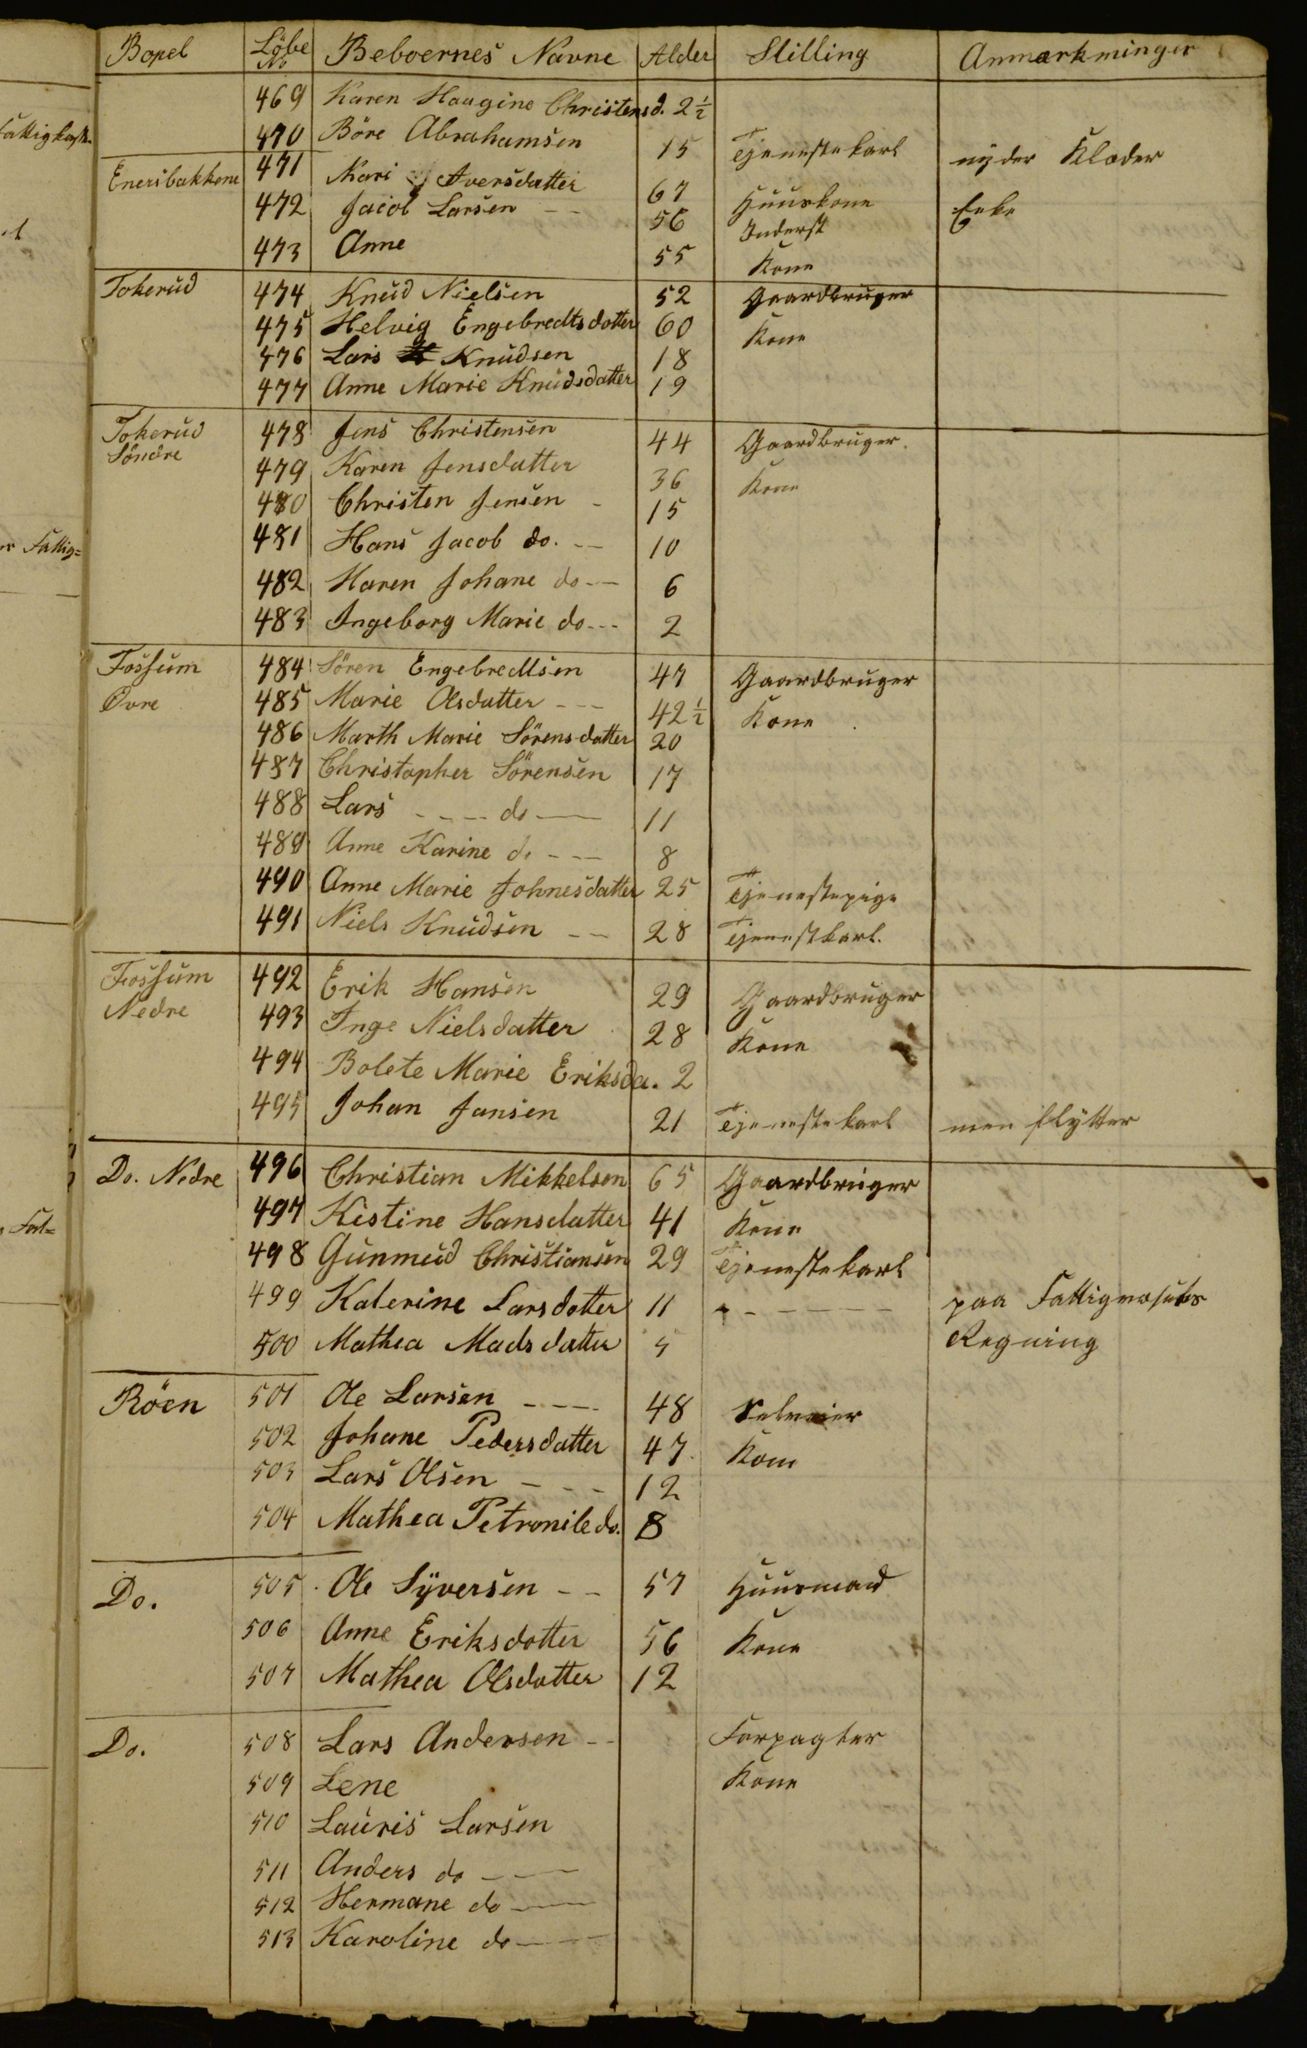 Bopel Løbe No Beboernes Navne Alder Stilling Anmærkninger
469 Karen Haagine Christensd. 2½
470 Böre Abrahamsen 15 Tjenestekarl nyder Klæder
Enersbakkene 471 Kari Iversdatter 67 Huuskone Enke
472 Jacob Larsen -- 56 Inderst
473 Anne 55 Kone
Tokerud 474 Knud Nielsen 52 Gaardbruger
475 Helvig Engebredtsdatter 60 Kone
476 Lars Knudsen 18
477 Anne Marie Knudsdatter 19
Tokerud 478 Jens Christensen 44 Gaardbruger.
Söndre 479 Karen Jensdatter 36 Kone
480 Christen Jensen - 15
481 Hans Jacob do. -- 10
482 Karen Johane do -- 6
483 Ingeborg Marie do --- 2
Fossum 484 Sören Engebredtsen 47 Gaardbruger
Övre 485 Marie Olsdatter --- 42½ Kone
486 Marth Marie Sörensdatter 20
487 Christopher Sörensen 17
488 Lars ---- do -- 11
489 Anne Karine do --- 8
490 Anne Marie Johnesdatter 25 Tjenestepige
491 Niels Knudsen -- 28 Tjenestkarl.
Fossum 492 Erik Hansen 29 Gaardbruger
Nedre 493 Inge Nielsdatter 28 Kone
494 Bolete Marie Eriksda. 2
495 Johan Jansen 21 Tjenestekarl men flytter
Do. Nedre 496 Christian Mikkelsen 65 Gaardbruger
497 Kistine Hansdatter 41 Kone
498 Gunmud Christiansen 29 Tjenestekarl
499 Katerine Larsdatter 11 ------- paa Fattigvæsets
500 Mathea Madsdatter 5 Regning
Röen 501 Ole Larsen ---- 48 Selveier
502 Johane Pedersdatter 47 Kone
503 Lars Olsen --- 12
504 Mathea Petronile do. 8
Do. 505 Ole Syversen -- 57 Huusmand
506 Anne Eriksdatter 56 Kone
507 Mathea Olsdatter 12
Do. 508 Lars Andersen -- Forpagter
509 Lene Kone
510 Lauris Larsen
511 Anders do ---
512 Hermane do ---
513 Karoline do ---